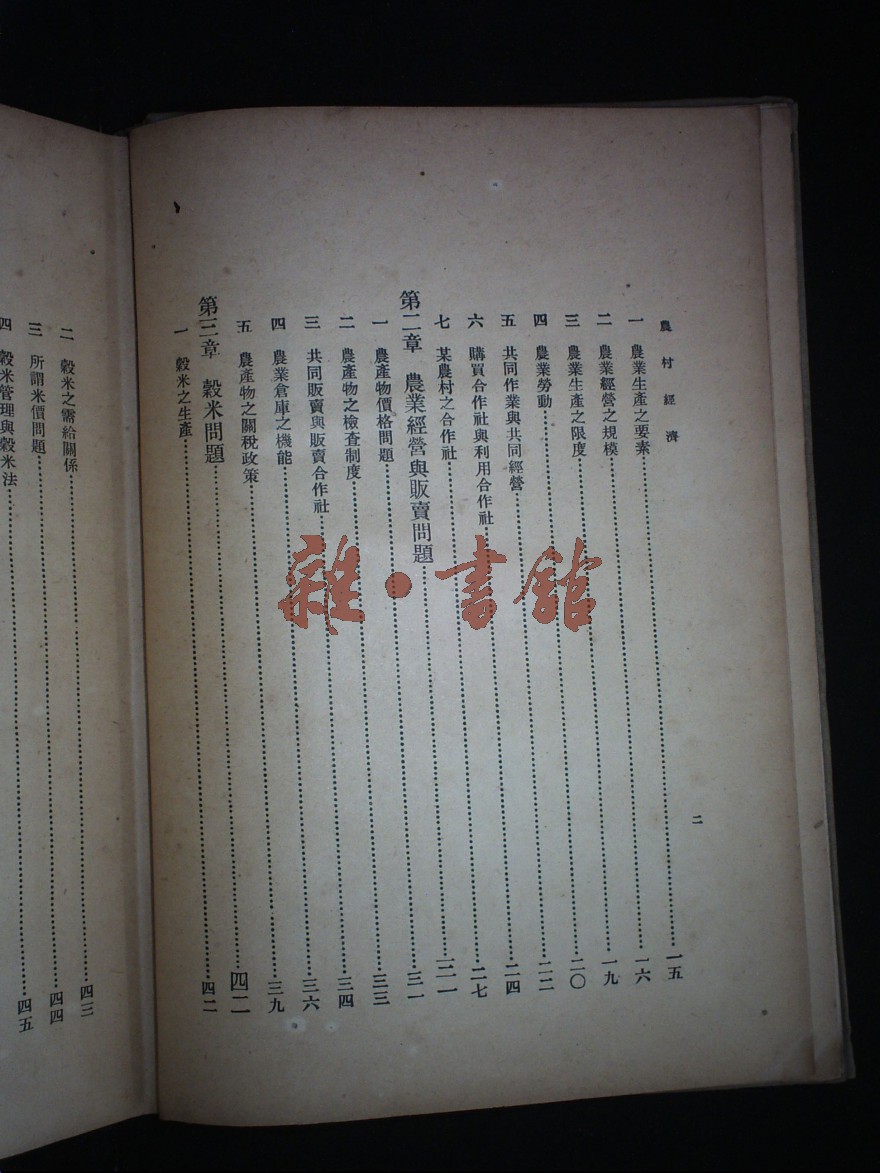 農村經濟
一 農業生產之要素……一五
二 農業經營之規模……一六
三 農業生產之限度……一九
四 農業勞動……二〇
五 共同作業與共同經營……二二
六 購買合作社與利用合作社……二四
七 某農村之合作社……二七
第二章 農業經營與販賣問題……三一
一 農產物價格問題……三一
二 農產物之檢查制度……三三
三 共同販賣與販賣合作社……三四
四 農業倉庫之機能……三六
五 農產物之關稅政策……三九
第三章 穀米問題……四二
一 穀米之生產……四二
二
二 穀米之需給關係……四三
三 所謂米價問題……四四
四 穀米管理與穀米法……四五
雜·書館